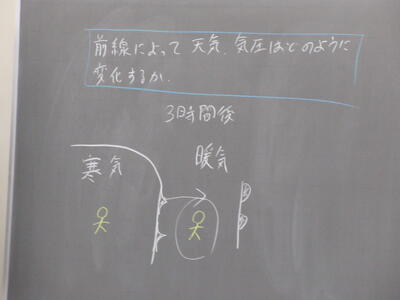 前線によって天気、気圧はどのように
変化するか.
3時間後
寒気
暖気